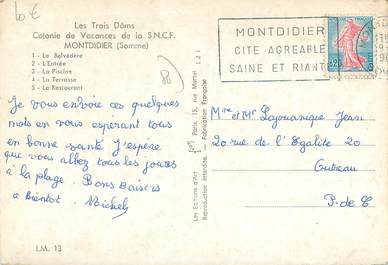 10 €
Les Trois Dôms
Colonie de Vacances de la S.N.C.F.
MONTDIDIER (Somme)
1 - Le Belvédère
2 - L'Entrée
3 - La Piscine
4 - La Terrasse
5 - Le Restaurant
MONTDIDIER
CITE AGREABLE
SAINE ET RIANTE
Je vous envoie ces quelques
mots en vous espérant tous
en bonne santé J'espère
que vous allez tous les jours
à la plage. Bons Baisers
a Bientot.
Mme et Mr Lajouanique Jean
20 rue de l'Egalité 20
Outreau
P. de C
Les Editions d'Art
Paris, 15, rue Martel
Reproduction Interdite. - Fabrication Française
I.M. 13